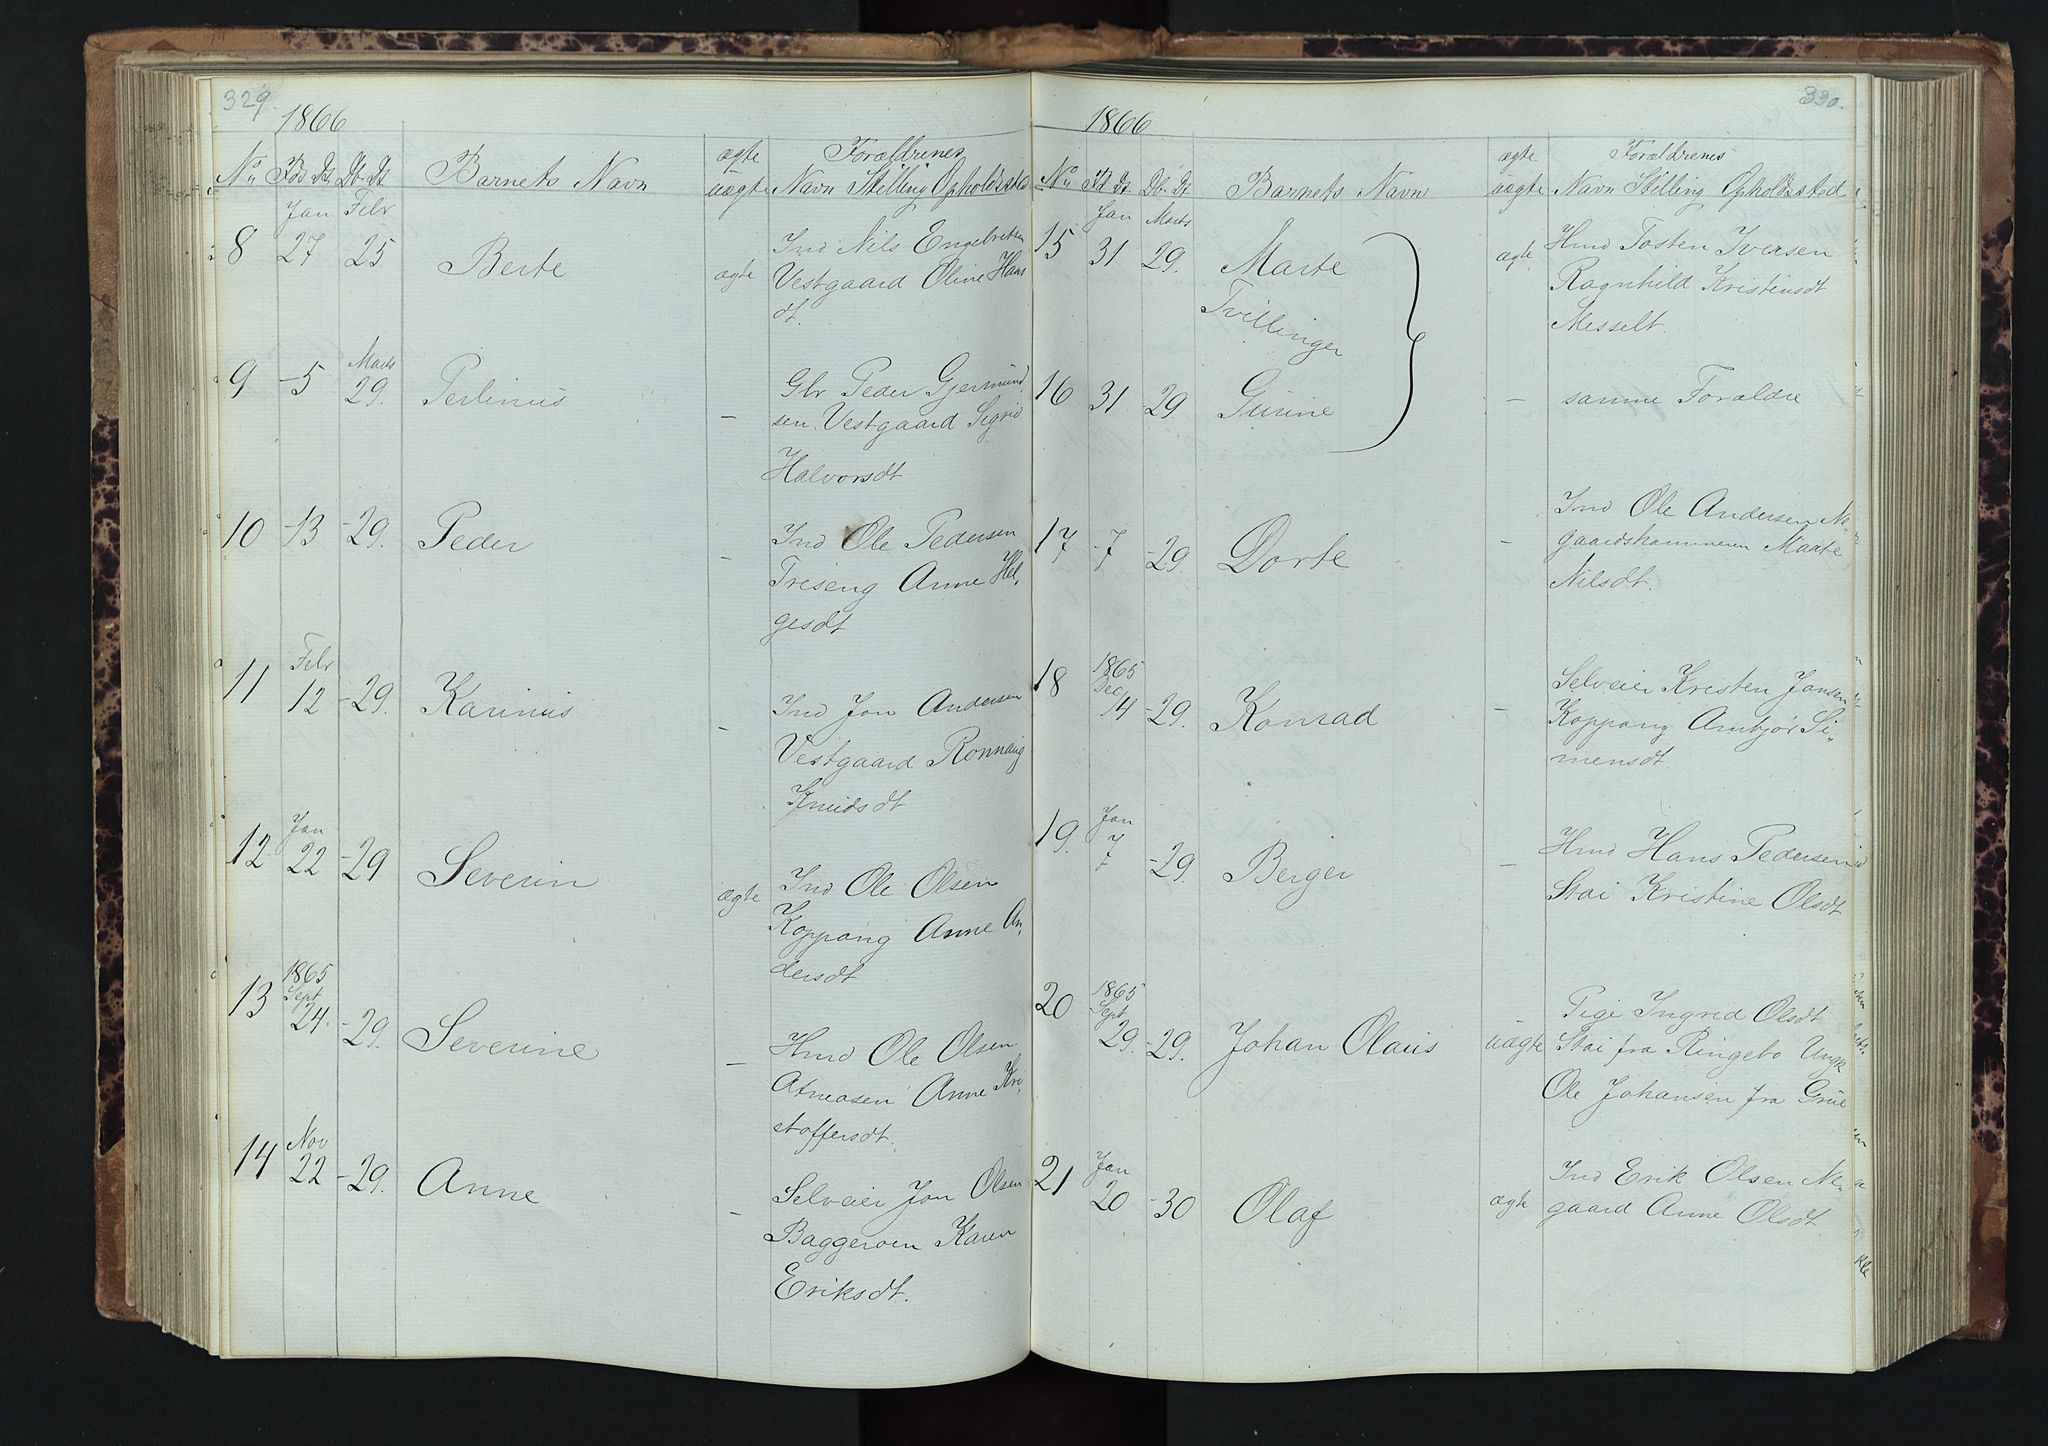 329.
1866
No Fds Dt. Db. Dt. Barnets Navn ægte uægte Forældrenes Navn Stilling Opholdssted
Jan Febr
8 27 25 Berte ægte Ind Nils Engebretsen
Vestgaard Oline Hans
dt.
Marts
9 -5 29. Perlinus - Gbr Peder Gjermund
sen Vestgaard Sigrid
Halvorsdt
10 -13 -29. Peder - Ind Ole Pedersen
Treseng Anne Hel-
gesdt
Febr
11 12 -29. Karinus - Ind Jon Andersen
Vestgaard Rønnaug
Knudsdt
Jan
12 22 -29 Severin ægte Ind Ole Olsen
Koppang Anne An-
dersdt
1865
Sept
13 24. -29. Severine - Hmd Ole Olsen
Atneosen Anne Kri-
stoffersdt.
Nov
14 22 -29. Anne - Selveier Jon Olsen
Baggeroen Karen
Eriksdt.
330.
1866
No Fd Dt. Db. Dt. Barnets Navn ægte uægte Forældrenes Navn Stilling Opholdssted
Jan Marts
15 31 29. Marte ægte Hmd Tosten Iversen
Ragnhild Kristensdt
Messelt.
Tvillinger
16 31 -29. Gunine - samme Forældre
17 -7 -29. Dorte - Ind Ole Andersen Ne-
gaardskammeren Marte
Nilsdt.
1865
Dec
18 14 -29. Konrad - Selveier Kristen Jonsen
Koppang Ambjør Si-
mensdt.
Jan
19. 7 -29. Berger - Hmd Hans Pedersen
Stai Kristine Olsdt
1865
Sept
20 29. -29. Johan Olaus uægte Pige Ingrid Olsdt
Stai fra Ringebo Ungk
Ole Johansen fra Grue
Jan
21 20 -30 Olaf ægte Ind Erik Olsen Ne-
gaard Anne Olsdt.